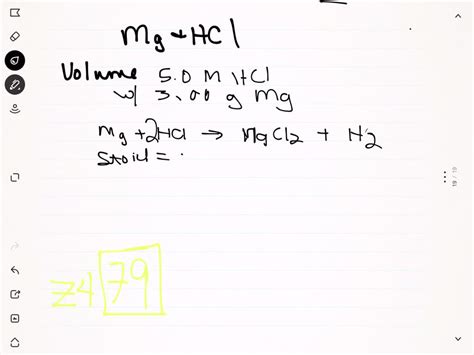 Mg + HCl
Volume 5.0 M HCl
w/ 3.00 g Mg
Mg + 2HCl → MgCl2 + H2
Stoich = .
24 79
19 / 19